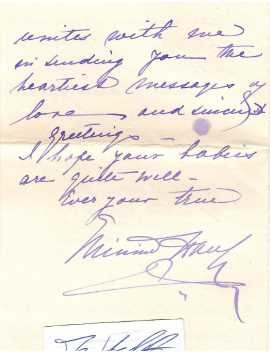 unites with me
in sending you the
heartiest messages of
love and sincerest
greetings -
I hope your babies
are quite well -
Ever your true
Minnie Hauk